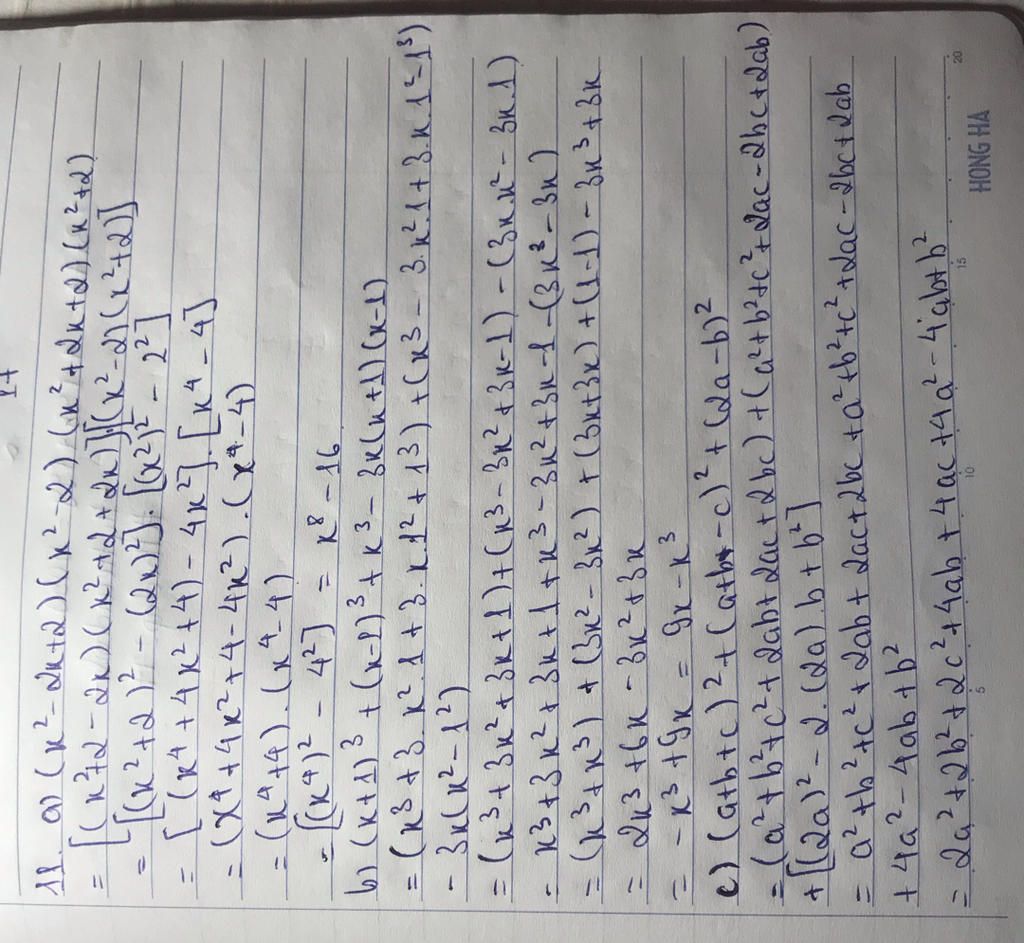 17
11. a) (x² - 2x + 2) (x² - 2) (x² + 2x + 2) (x² + 2)
= [(x² + 2 - 2x) (x² + 2 + 2x)] [(x² - 2) (x² + 2)]
= [(x² + 2)² - (2x)²] . [(x²)² - 2²]
= [(x⁴ + 4x² + 4) - 4x²] . [x⁴ - 4]
= (x⁴ + 4x² + 4 - 4x²) . (x⁴ - 4)
= (x⁴ + 4) . (x⁴ - 4)
= [(x⁴)² - 4²] = x⁸ - 16
b) (x + 1)³ + (x - 1)³ + x³ - 3x (x + 1) (x - 1)
= (x³ + 3 . x² . 1 + 3 . x . 1² + 1³) + (x³ - 3 . x² . 1 + 3 . x . 1² - 1³)
- 3x (x² - 1²)
= (x³ + 3x² + 3x + 1) + (x³ - 3x² + 3x - 1) - (3x . x² - 3x . 1)
= x³ + 3x² + 3x + 1 + x³ - 3x² + 3x - 1 - (3x³ - 3x)
= (x³ + x³) + (3x² - 3x²) + (3x + 3x) + (1 - 1) - 3x³ + 3x
= 2x³ + 6x - 3x² + 3x
= - x³ + 9x = 9x - x³
c) (a + b + c)² + (a + b - c)² + (2a - b)²
= (a² + b² + c² + 2ab + 2ac + 2bc) + (a² + b² + c² + 2ac - 2bc + 2ab)
+ [(2a)² - 2 . (2a) b + b²]
= a² + b² + c² + 2ab + 2ac + 2bc + a² + b² + c² + 2ac - 2bc + 2ab
+ 4a² - 4ab + b²
= 2a² + 2b² + 2c² + 4ab + 4ac + 4a² - 4ab + b²
5 10 15 20
HONG HA